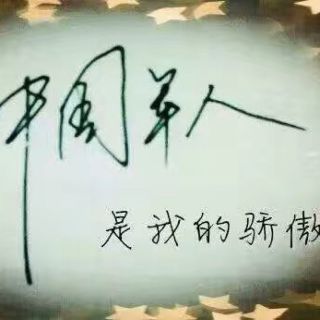 中国军人
是我的骄傲